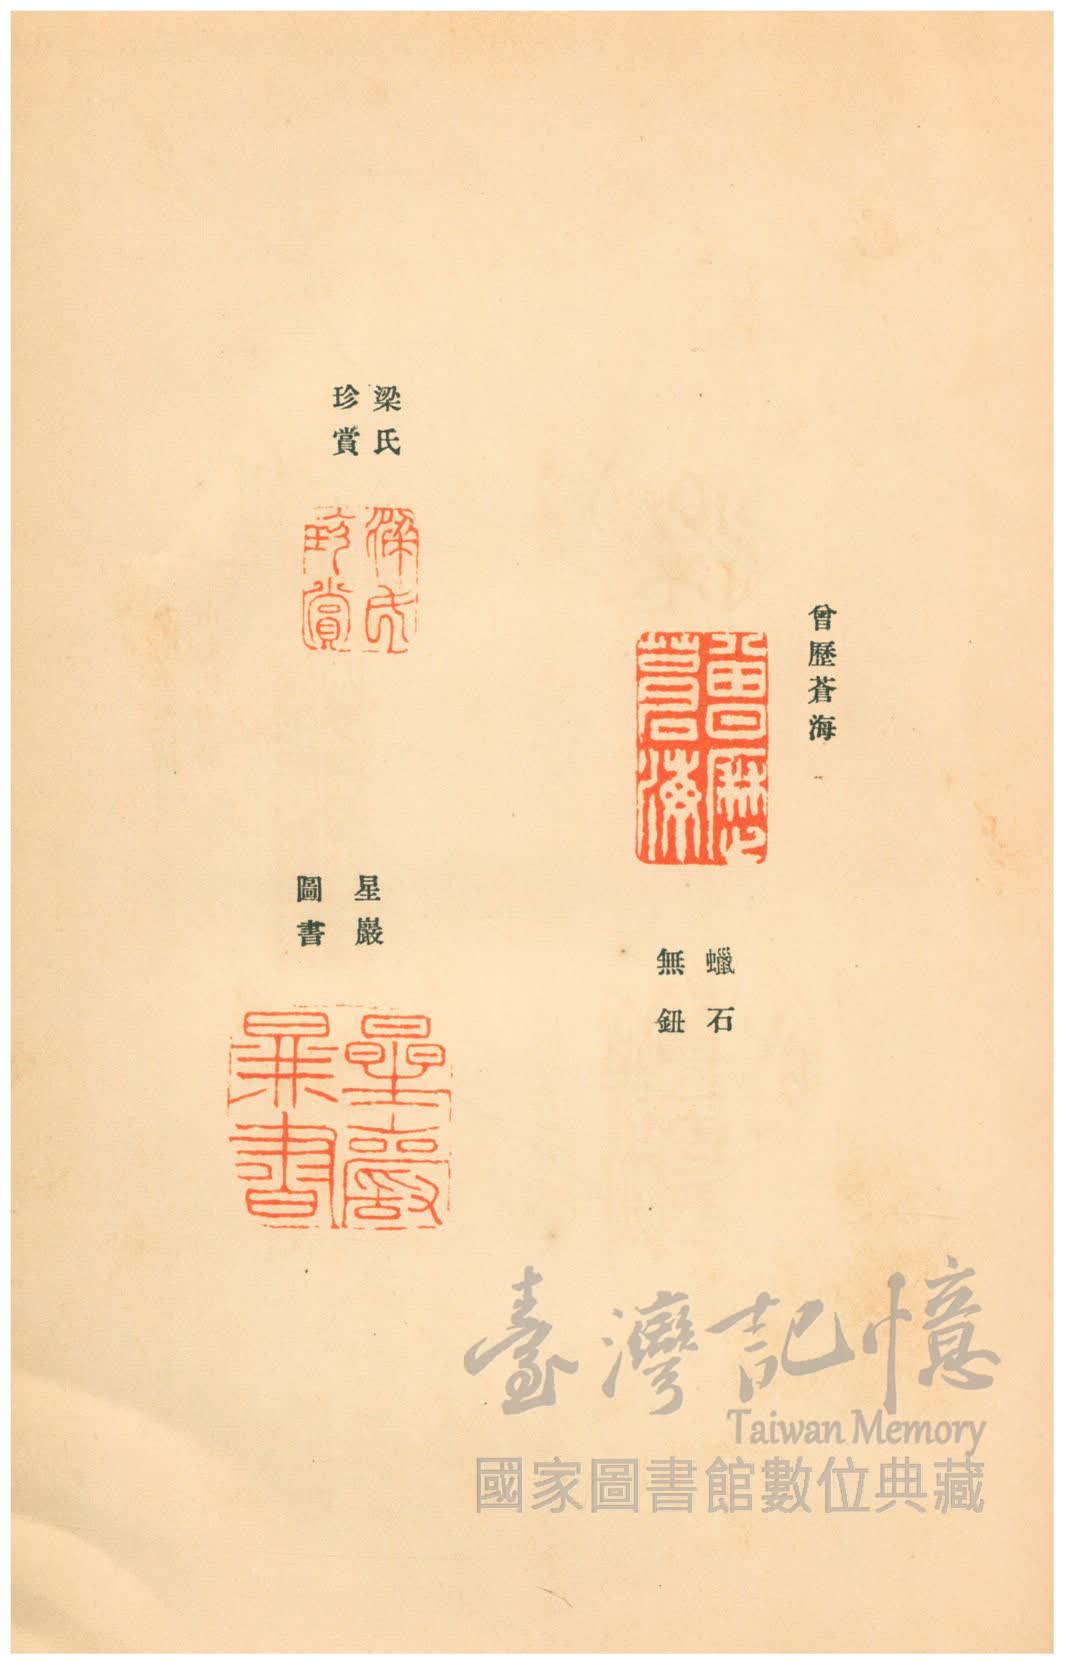 曾歷蒼海
曾歷
蒼海
蠟石
無鈕
梁氏
珍賞
梁氏
珍賞
星巖
圖書
星巖
圖書
臺灣記憶
Taiwan Memory
國家圖書館數位典藏